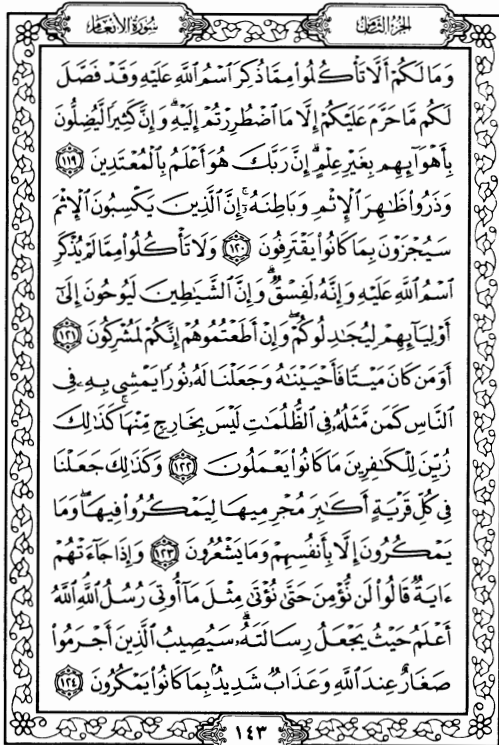 الجزء الثامن سورة الأنعام
وَمَا لَكُمْ أَلَّا تَأْكُلُوا۟ مِمَّا ذُكِرَ ٱسْمُ ٱللَّهِ عَلَيْهِ وَقَدْ فَصَّلَ
لَكُم مَّا حَرَّمَ عَلَيْكُمْ إِلَّا مَا ٱضْطُرِرْتُمْ إِلَيْهِ ۗ وَإِنَّ كَثِيرًا لَّيُضِلُّونَ
بِأَهْوَآئِهِم بِغَيْرِ عِلْمٍ ۗ إِنَّ رَبَّكَ هُوَ أَعْلَمُ بِٱلْمُعْتَدِينَ ١١٩
وَذَرُوا۟ ظَٰهِرَ ٱلْإِثْمِ وَبَاطِنَهُۥٓ ۚ إِنَّ ٱلَّذِينَ يَكْسِبُونَ ٱلْإِثْمَ
سَيُجْزَوْنَ بِمَا كَانُوا۟ يَقْتَرِفُونَ ١٢٠ وَلَا تَأْكُلُوا۟ مِمَّا لَمْ يُذْكَرِ
ٱسْمُ ٱللَّهِ عَلَيْهِ وَإِنَّهُۥ لَفِسْقٌ ۗ وَإِنَّ ٱلشَّيَٰطِينَ لَيُوحُونَ إِلَىٰٓ
أَوْلِيَآئِهِمْ لِيُجَٰدِلُوكُمْ ۖ وَإِنْ أَطَعْتُمُوهُمْ إِنَّكُمْ لَمُشْرِكُونَ ١٢١
أَوَمَن كَانَ مَيْتًا فَأَحْيَيْنَٰهُ وَجَعَلْنَا لَهُۥ نُورًا يَمْشِى بِهِۦ فِى
ٱلنَّاسِ كَمَن مَّثَلُهُۥ فِى ٱلظُّلُمَٰتِ لَيْسَ بِخَارِجٍ مِّنْهَا ۚ كَذَٰلِكَ
زُيِّنَ لِلْكَٰفِرِينَ مَا كَانُوا۟ يَعْمَلُونَ ١٢٢ وَكَذَٰلِكَ جَعَلْنَا
فِى كُلِّ قَرْيَةٍ أَكَٰبِرَ مُجْرِمِيهَا لِيَمْكُرُوا۟ فِيهَا ۖ وَمَا
يَمْكُرُونَ إِلَّا بِأَنفُسِهِمْ وَمَا يَشْعُرُونَ ١٢٣ وَإِذَا جَآءَتْهُمْ
ءَايَةٌ قَالُوا۟ لَن نُّؤْمِنَ حَتَّىٰ نُؤْتَىٰ مِثْلَ مَآ أُوتِىَ رُسُلُ ٱللَّهِ ۘ ٱللَّهُ
أَعْلَمُ حَيْثُ يَجْعَلُ رِسَالَتَهُۥ ۗ سَيُصِيبُ ٱلَّذِينَ أَجْرَمُوا۟
صَغَارٌ عِندَ ٱللَّهِ وَعَذَابٌ شَدِيدٌۢ بِمَا كَانُوا۟ يَمْكُرُونَ ١٢٤
١٤٣